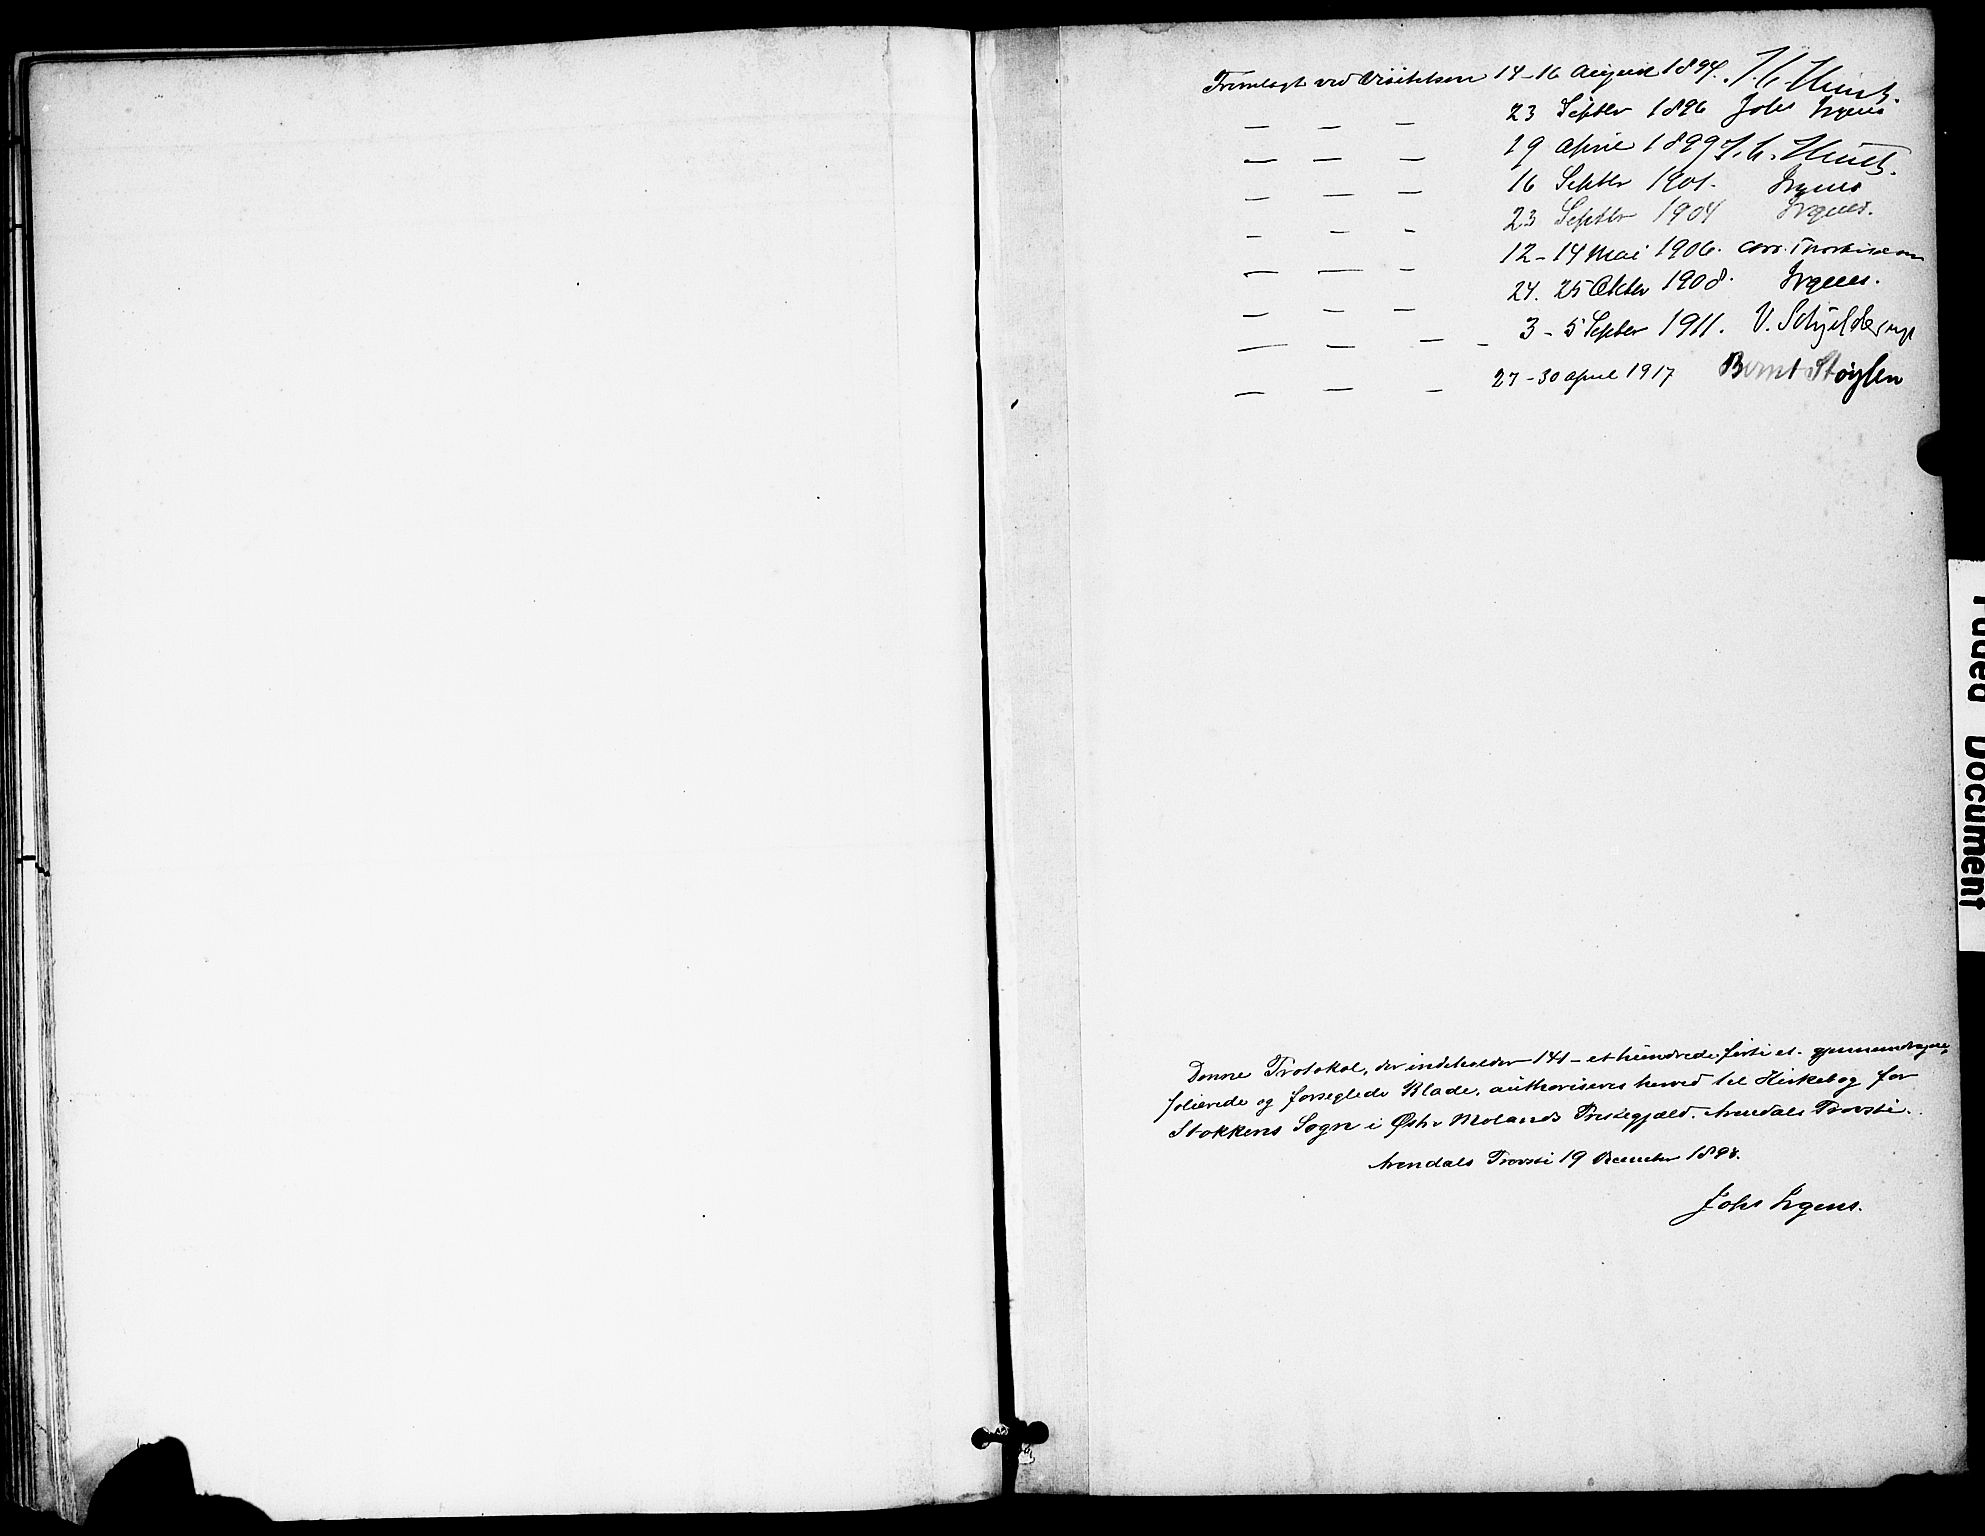 Fremlagt ved Visitatsen 14-16 August 1894. J. C. Heuch.
— — — 23 Septbr 1896 Johs Irgens
— — — 19 April 1899 J. C. Heuch.
— — — 16 Septbr 1901. Irgens
— — — 23 Septbr 1904 Irgens.
— — — 12-14 Mai 1906. Thorkildsen
— — — 24. 25 Oktbr 1908. Irgens.
— — — - 3-5 Septbr 1911. V. Schjelderup
— — — 27-30 april 1917 Bernt Støylen
Denne Protokol, der indeholder 141 - et hundrede firti et - gjennemdragne,
folierede og forseglede Blade, authoriseres herved til Kirkebog for
Stokkens Sogn i Østre Molands Præstegjæld. Arendals Provsti.
Arendals Provsti 19 December
Johs Irgens.
Faded Document